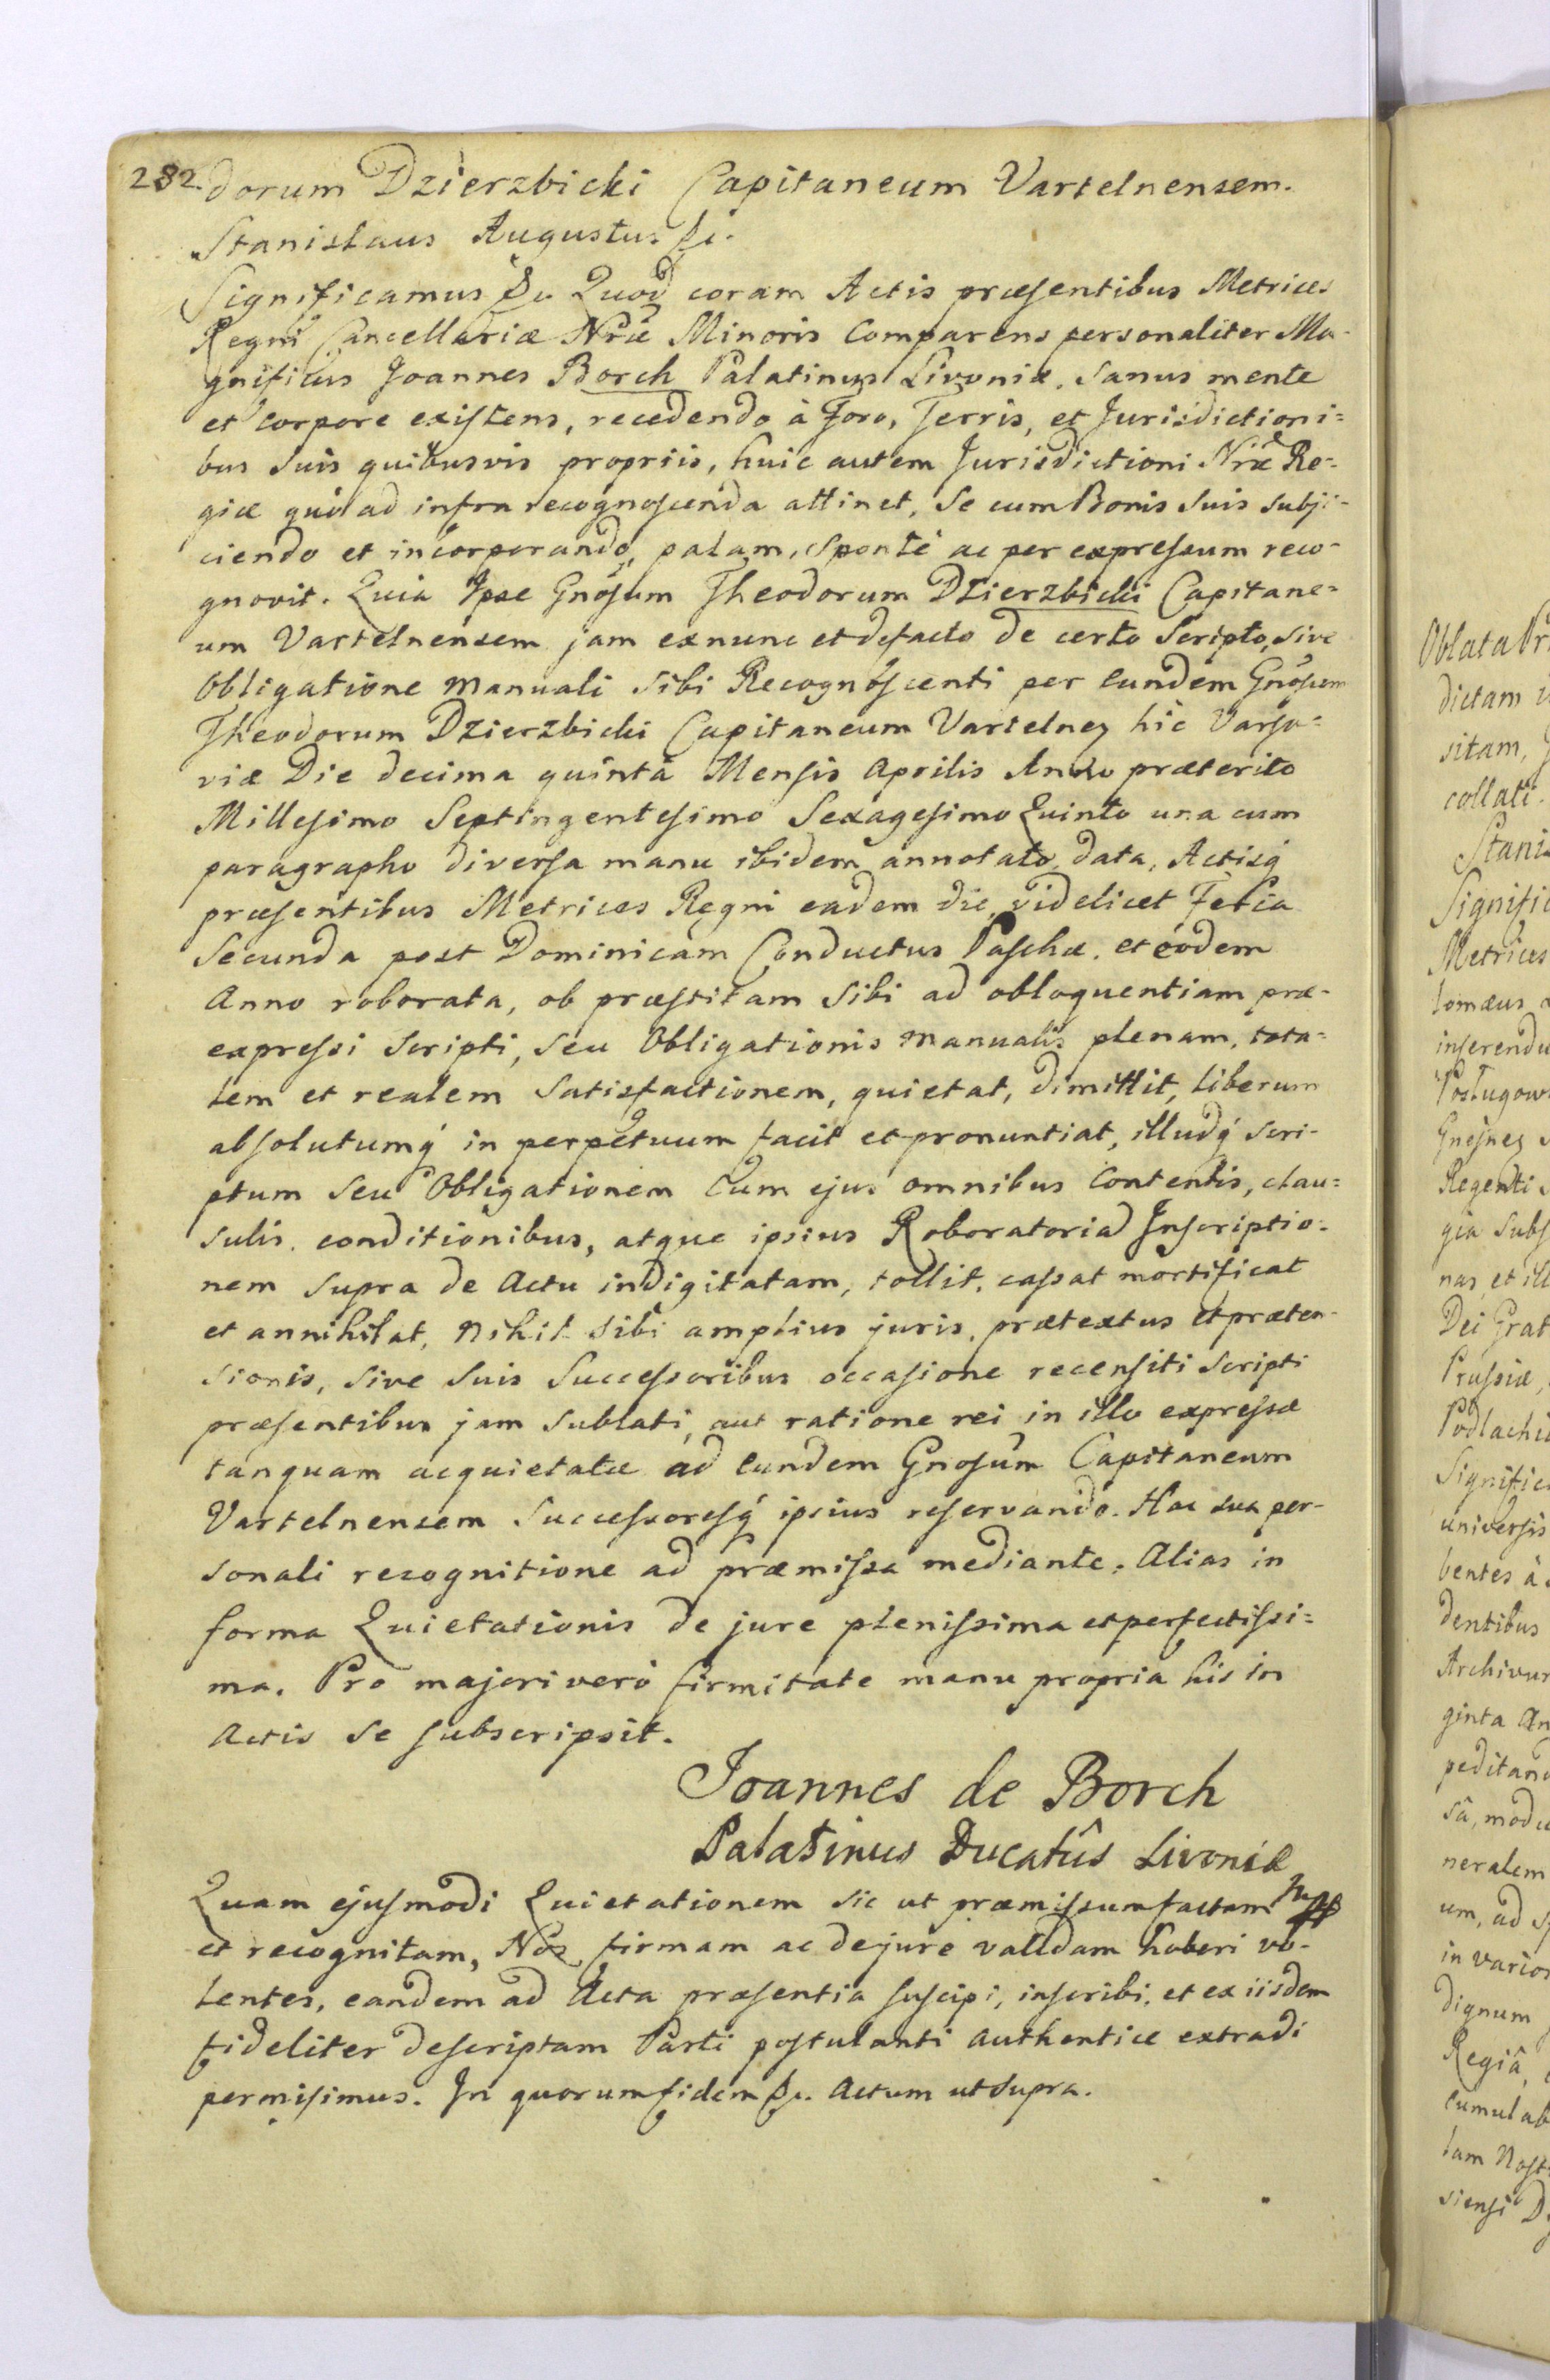 282. dorum Dzierzbicki Capitaneum Vartelnensem.
Stanislaus Augustus &c.
Significamus &c. Quod coram Actis præsentibus Metrices
Regni Cancellariæ Nræ Minoris Comparens personaliter Ma-
gnificus Joannes Borch Palatinus Livoniæ, sanus mente
et corpore existens, recedendo à Foro, Terris, et Jurisdictioni=
bus suis quibusvis propriis, huic autem Jurisdictioni Nræ Re-
giæ quò ad infra recognoscenda attinet, se cum Bonis suis subji-
ciendo et incorporando, palam, sponte ac per expressum reco-
gnovit. Quia Ipse Gnosum Theodorum Dzierzbicki Capitane=
um Vartelnensem jam exnunc et defacto de certo Scripto, sive
Obligatione manuali sibi Recognoscenti per eundem Gnosum
Theodorum Dzierzbicki Capitaneum Vartelnez hic Varsa=
viæ Die decima quinta Mensis Aprilis Anno præterito
Millesimo Septingentesimo Sexagesimo Quinto una cum
paragrapho diversa manu ibidem annotato data, Actisq́
præsentibus Metrices Regni eadem die, videlicet Feria
Secunda post Dominicam Conductus Paschæ, et eodem
Anno roborata, ob præstitam sibi ad obloquentiam præ-
expressi Scripti, seu Obligationis manualis plenam, tota=
lem et realem Satisfactionem, quietat, dimittit, liberum
absolutumq́ in perpetuum facit et pronuntiat, illudq́ Scri-
ptum seu Obligationem cum ejus omnibus contentis, clau=
sulis, conditionibus, atque ipsius Roboratoria Inscriptio-
nem supra de Actu indigitatam, tollit, cassat mortificat
et annihilat, nihil sibi amplius juris, prætextus et præten-
sionis, sive suis Successoribus occasione recensiti Scripti
præsentibus jam sublati, aut ratione rei in illo expressæ
tanquam acquietatæ ad eundem Gnosum Capitaneum
Vartelnensem Successoresq́ ipsius reservando. Hac sua per-
sonali recognitione ad præmissa mediante. Alias in
forma Quietationis de jure plenissima et perfectissi=
ma. Pro majori verò firmitate manu propria his in
Actis se subscripsit.
Joannes de Borch
Palatinus Ducatûs Livoniæ
Quam ejusmodi Quietationem sic ut præmissum factam
et recognitam, Nos firmam ac dejure validam haberi vo-
lentes, eandem ad Acta præsentia suscipi, inscribi, et ex iisdem
fideliter descriptam Parti postulanti authentice extradi
permisimus. In quorum fidem &c. Actum ut supra.
Oblata
dictam
sitam,
collati
Metrices
Dei Grat
Prussiæ,
universis
bentes à
dentibus
ginta
neralem
um, ad
in varios
dignum
Regiâ,